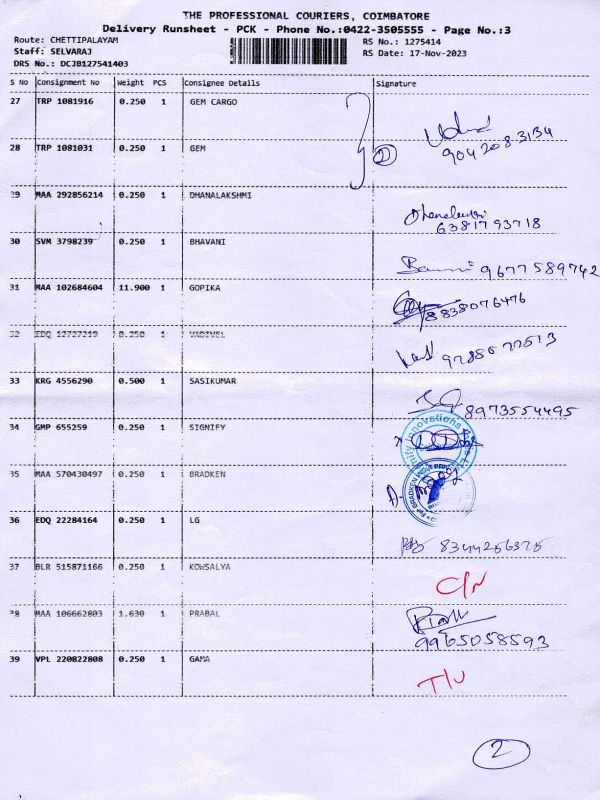 THE PROFESSIONAL COURIERS, COIMBATORE
Delivery Runsheet - PCK - Phone No.:0422-3505555 - Page No.:3
Route: CHETTIPALAYAM RS No.: 1275414
Staff: SELVARAJ RS Date: 17-Nov-2023
DRS No.: DCJB127541403
S No Consignment No Weight PCS Consignee Details Signature
27 TRP 1081916 0.250 1 GEM CARGO
28 TRP 1081031 0.250 1 GEM 2 904 208 3134
29 MAA 292856214 0.250 1 DHANALAKSHMI
Dhanalakshmi
6381793718
30 SVM 3798239 0.250 1 BHAVANI
9677589742
31 MAA 102684604 11.900 1 GOPIKA
8838076476
32 EDQ 12727219 0.250 1 VADIVEL
33 KRG 4556290 0.500 1 SASIKUMAR
8973554495
34 GMP 655259 0.250 1 SIGNIFY
35 MAA 570430497 0.250 1 BRADKEN
36 EDQ 22284164 0.250 1 LG
8344256375
37 BLR 515871166 0.250 1 KOWSALYA C/N
38 MAA 106662803 1.630 1 PRABAL
9965058593
39 VPL 220822808 0.250 1 GAMA
T/U
2